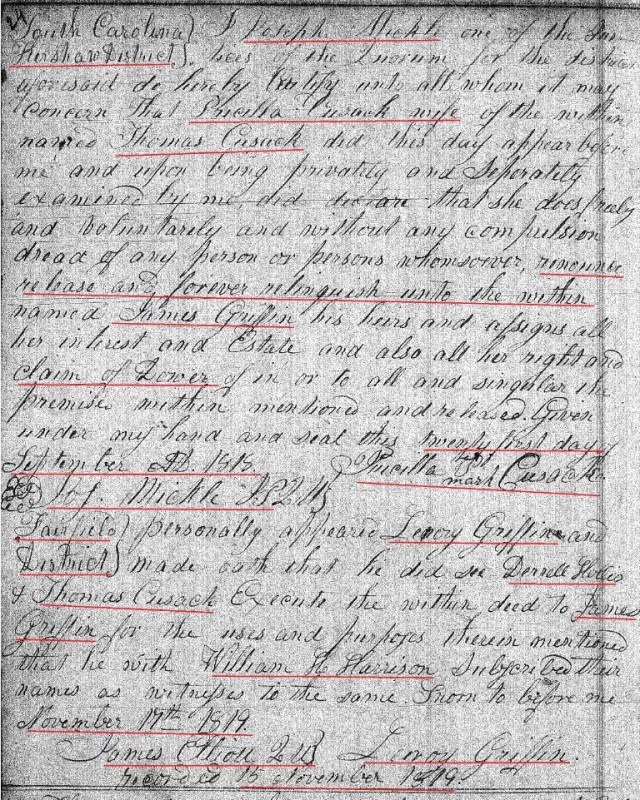 South Carolina } I Joseph Mickle one of the Jus-
Kershaw District } tices of the Quorum for the district
aforesaid do hereby Certify unto all whom it may
Concern that Pricilla Cusack wife of the within
named Thomas Cusack did this day appear before
me and upon being privately and Seperately
examined by me did declare that she does freely
and Voluntarely and without any compulsion
dread of any person or persons whomsoever, renounce
release and forever relinquish unto the within
named James Griffin his heirs and assigns all
her interest and Estate and also all her right and
claim of Dower of in or to all and singular the
premises within mentioned and released. Given
under my hand and seal this twenty first day of
September AD 1818. Pricilla her mark Cusack
Jos. Mickle J2U
Fairfield } personally appeared Leroy Griffin and
District } made oath that he did see Derrell Hollis
& Thomas Cusack Execute the within deed to James
Griffin for the uses and purposes therein mentioned
that he with William H Harrison Subscribed their
names as witnesses to the same. Sworn to before me
November 17th 1819
James Elliott 2U Leroy Griffin.
recorded 15 November 1819